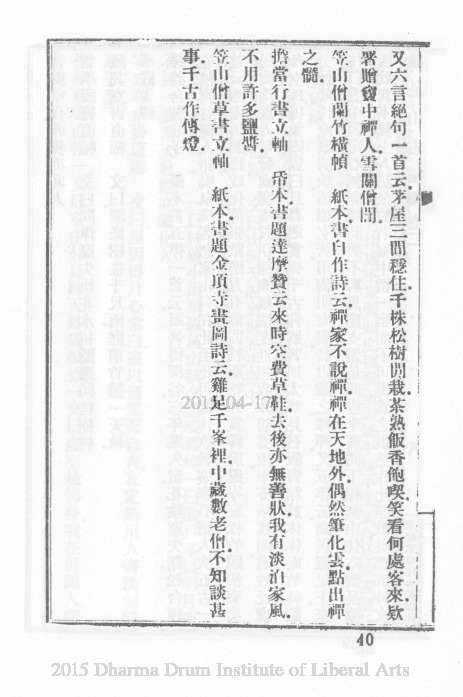 又六言絕句一首云茅屋三間穩住千株松樹閒栽茶熟飯香飽喫笑看何處客來欵
署贈竇中禪人雲關僧閒
笠山僧蘭竹橫幀 紙本書自作詩云禪家不說禪禪在天地外偶然筆化雲點出禪
之髓
擔當行書立軸 帋本書題達摩贊云來時空費草鞋去後亦無善狀我有淡泊家風
不用許多鹽醬
笠山僧草書立軸 紙本書題金頂寺畫圖詩云雞足千峯裡中藏數老僧不知談甚
事千古作傳燈
40
2015 Dharma Drum Institute of Liberal Arts